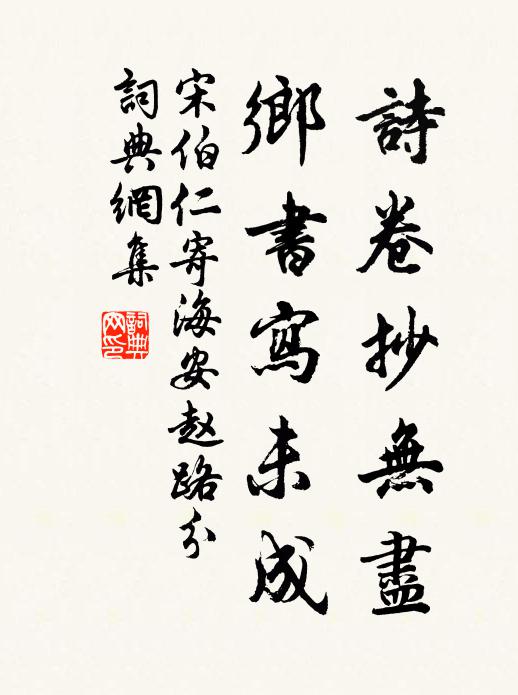 詩卷抄無盡
鄉書寫未成
宋伯仁寄海安赵路分
詞典網集
詞典網印